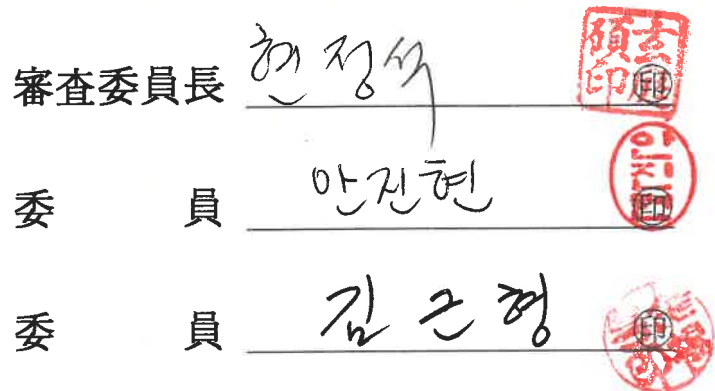 審査委員長 현정석 印
委 員 안진현 印
委 員 김근형 印